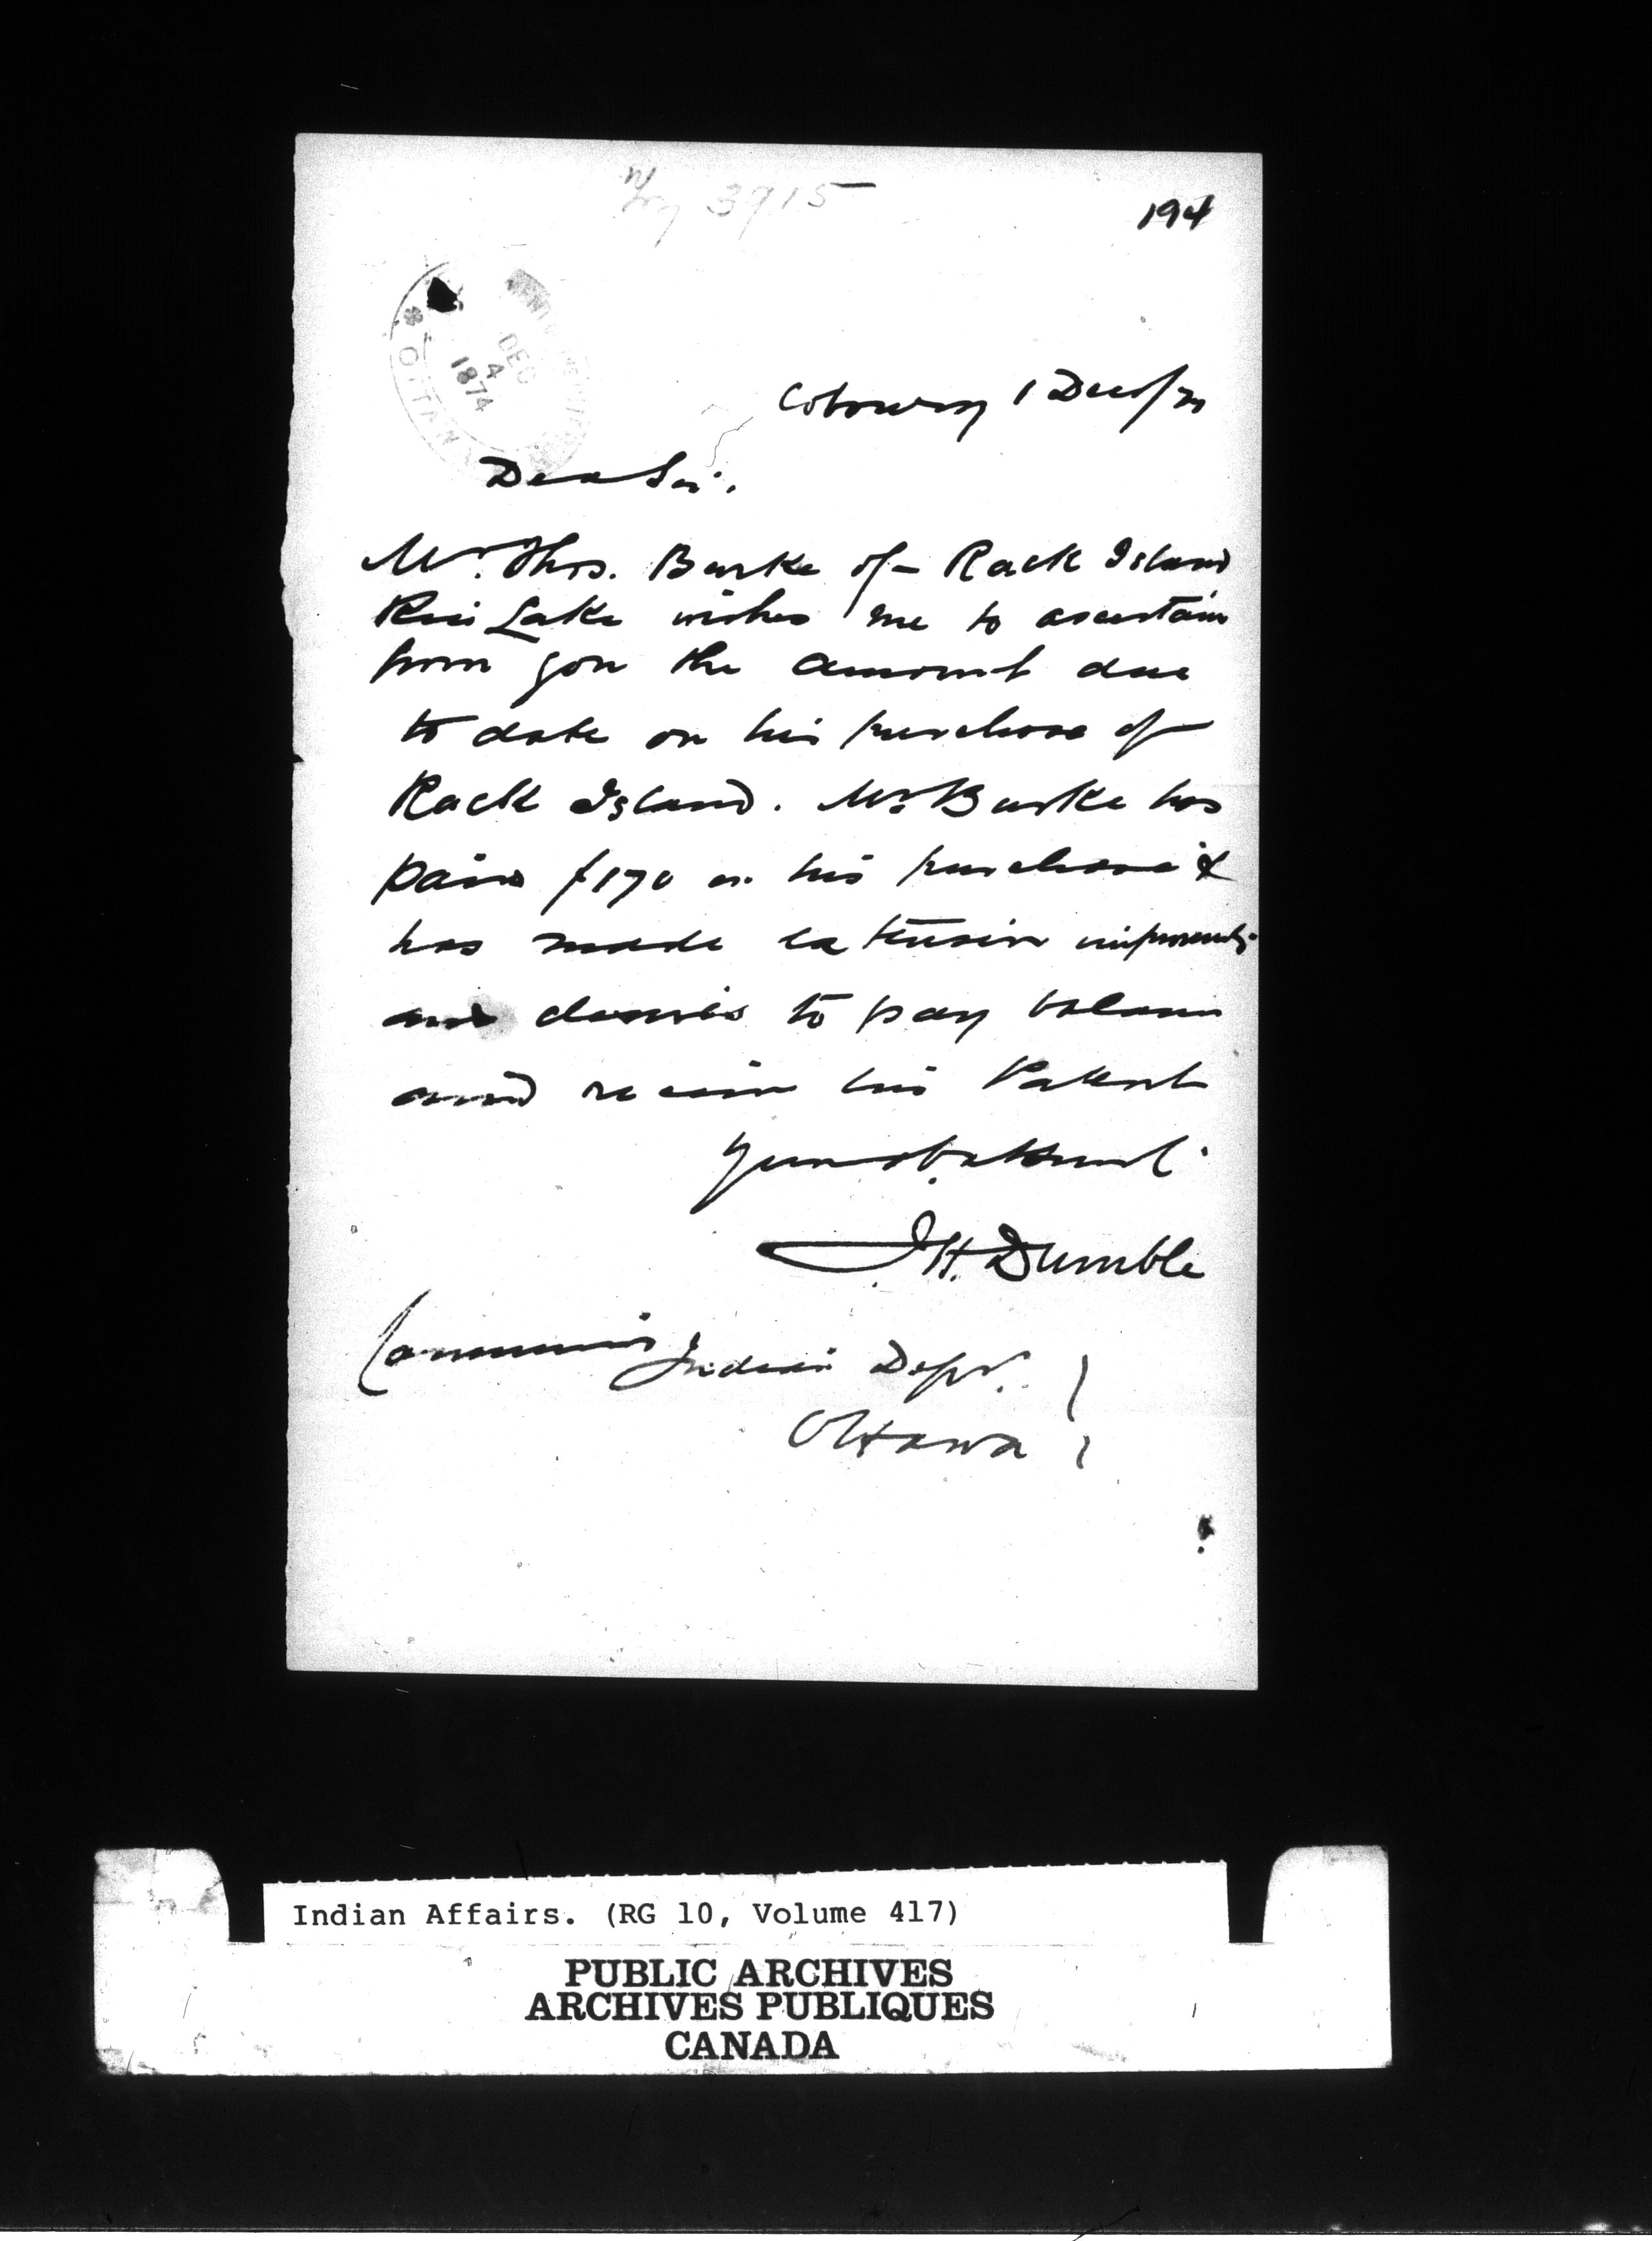 3915
194
DEC
4
1874
OTTAWA
Cobourg 1 Dec/74
Dear Sir.
Mr. Thos. Burke of Rack Island
Rice Lake wishes me to ascertain
from you the amount due
to date on his purchase of
Rack Island. Mr. Burke has
paid $170 on his purchase &
has made extensive improvmts.
and desires to pay balance
and receive his Patent
Your obt Servt.
J.H. Dumble
Commissr Indian Dept.
Ottawa
Indian Affairs. (RG 10, Volume 417)
PUBLIC ARCHIVES
ARCHIVES PUBLIQUES
CANADA